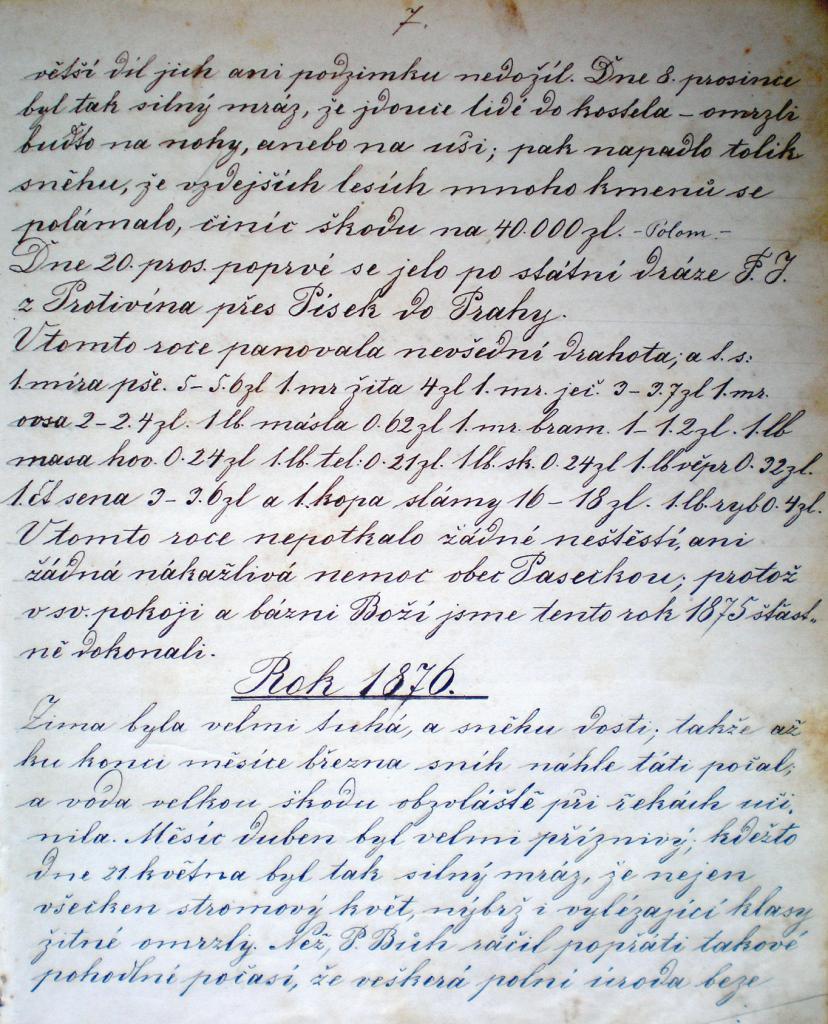 7.
větší díl jich ani podzimku nedožil. Dne 8. prosince
byl tak silný mráz, že jdouce lidé do kostela – omrzli
buďto na nohy, anebo na uši; pak napadlo tolik
sněhu, že vzdejších lesích mnoho kmenů se
polámalo, činíc škodu na 40.000 zl. – Polom. –
Dne 20. pros. poprvé se jelo po státní dráze F. J.
z Protivína přes Písek do Prahy.
V tomto roce panovala nevšední drahota; a t. s:
1. míra pše. 5–5.6zl 1. mr žita 4zl 1. mr. ječ. 3–3.7zl 1. mr.
ovsa 2–2.4zl. 1 lb. másla 0.62zl 1. mr. bram. 1–1.2zl. 1. lb
masa hov. 0.24zl 1. lb. tel: 0.21zl. 1 lb. sk. 0.24zl 1. lb vepř 0.32zl.
1. ct sena 3–3.6zl a 1. kopa slámy 16–18 zl. 1. lb. ryb 0.4zl.
V tomto roce nepotkalo žádné neštěstí, ani
žádná nákažlivá nemoc obec Paseckou; protož
v sv. pokoji a bázni Boží jsme tento rok 1875 šťast-
ně dokonali.
Rok 1876.
Zima byla velmi tuhá, a sněhu dosti; takže až
ku konci měsíce března sníh náhle táti počal;
a voda velkou škodu obzvláště při řekách uči-
nila. Měsíc duben byl velmi příznivý; kdežto
dne 21 května byl tak silný mráz, že nejen
všecken stromový květ, nýbrž i vylézající klasy
žitné omrzly. Než, P. Bůh ráčil popřáti takové
pohodlné počasí, že veškerá polní úroda beze